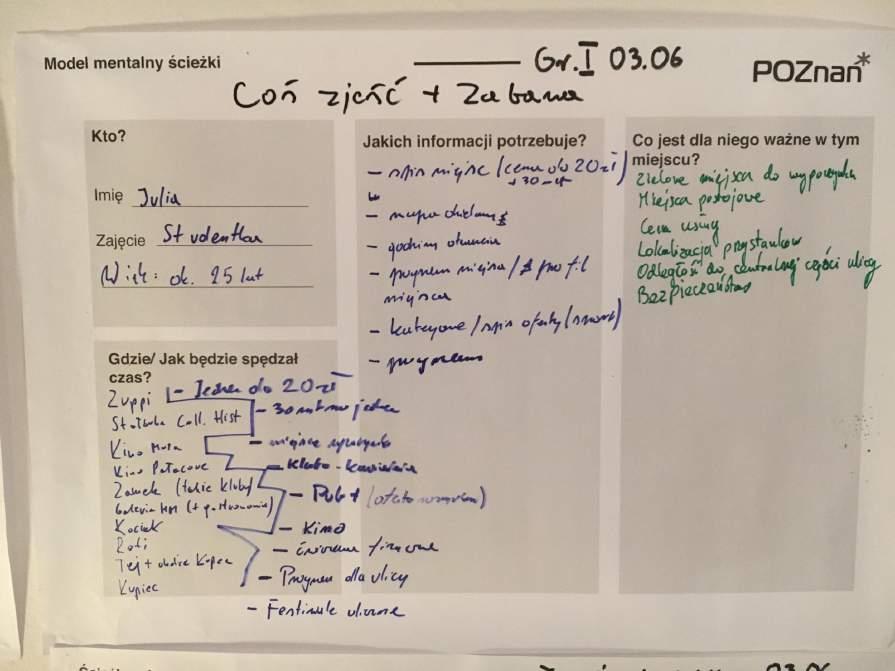 Model mentalny ścieżki
Gr. I 03.06
POZnan*
Coś zjeść + Zabawa
Kto?
Imię Julia
Zajęcie Studentka
Wiek: ok. 25 lat
Jakich informacji potrzebuje?
- spis miejsc (cena do 20zł)
+30 mt
- mapa
- godziny otwarcia
- miejsca / profil
miejsca
- kategorie / spis oferty
Co jest dla niego ważne w tym
miejscu?
Zielone miejsca do wypoczynku
Miejsca postojowe
Cena usług
Lokalizacja przystanków
Odległość do centralnej części ulicy
Bezpieczeństwo
Gdzie/ Jak będzie spędzał
czas?
Zuppi
Stołówka Coll. Hist
Kino Muza
Kino Pałacowe
Zamek (także kluby)
Galeria MM (+ gastronomia)
Kociak
Roti
Tej + okolice Kupca
Kupiec
- Jedzenie do 20zł
- 30 na jedzenie
- miejsce
- Klubo-kawiarnia
- Pub +
- Kino
- ćwiczenia fizyczne
- dla ulicy
- Festiwale uliczne
03.06